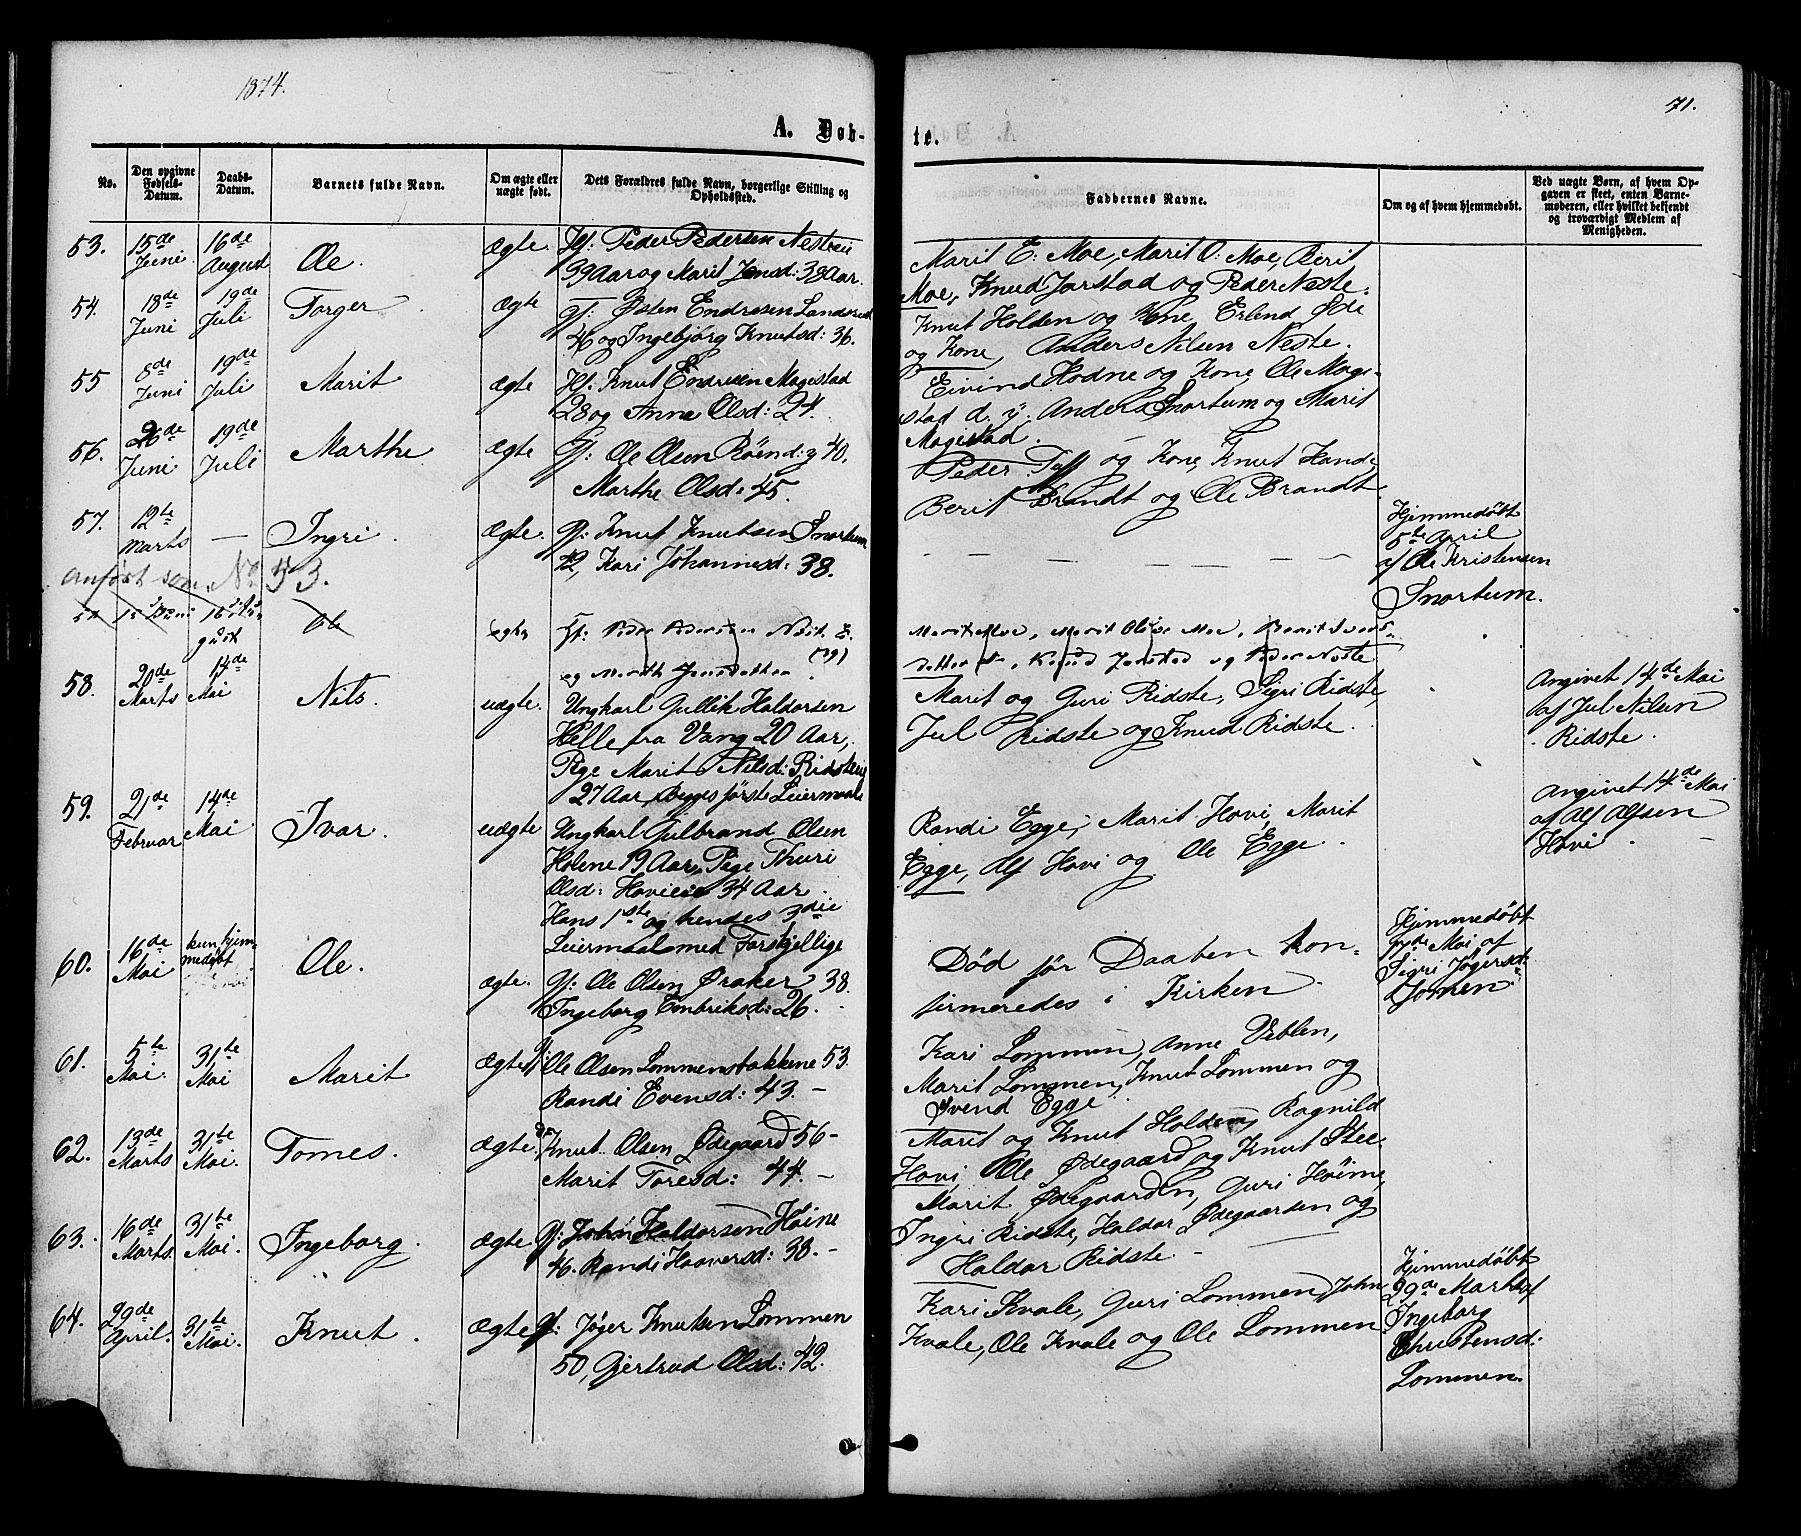 1874.
71.
A. Døb-
te.
No.
Den opgivne Fødsels-Datum.
Daabs-Datum.
Barnets fulde Navn.
Om ægte eller uægte født.
Dets Forældres fulde Navn, borgerlige Stilling og Opholdssted.
Faddernes Navne.
Om og af hvem hjemmedøbt.
Ved uægte Børn, af hvem Opgaven er skeet, enten Barnemoderen, eller hvilket bekjendt og troværdigt Medlem af Menigheden.
53. 15de Juni 16de August Ole. ægte
Peder Pedersen
39 Aar og Marit Jensd: 38 Aar.
Marit E. Moe, Marit O. Moe, Berit
Moe, Knud Jarstad og Peder Neste.
54. 18de Juni 19de Juli Torger ægte
Østen Endresen
46 og Ingebjørg Knutsd: 36.
Knut Holden og Kone, Erlend Øde
og Kone, Anders Nilsen Neste.
55 8de Juni 19de Juli Marit ægte
Knut Endresen Magistad
28 og Anne Olsd: 24.
Eivind Hodne og Kone, Ole Magi-
stad d. y. Anders Snortum og Marit
Magistad.
56. 26de Juni 19de Juli Marthe ægte
Gf: Ole Olsen Røen d: y 40.
Marthe Olsd: 45.
Peder Tuff og Kone, Knut Hande
Berit Brandt og Ole Brandt
57. 12te Marts — Ingri. Ægte.
Gf: Knut Knutsen Snortum
42, Kari Johannesd: 38.
Hjemmedøbt
5te April
af Ole Kristensen
Snortum.
anført som No 53.
15 Juni 16 August Ole ægte
og Marith Jensdatter (39)
Marit Moe, Marit Olsve Moe, Berit
Knud Jarstad og Peder Neste
58. 20de Marts 14de Mai Nils. uægte.
Ungkarl Gullik Haldorsen
Helle fra Vang 20 Aar,
Pige Marit Nilsd: Ridsteeie
27 Aar, Begges første Leiermaal
Marit og Guri Ridste, Sigri Ridste,
Jul Ridste og Knud Ridste.
Angivet 14de Mai
af Jul Nilsen
Ridste.
59. 21de Februar 14de Mai Ivar. uægte
Ungkarl Gulbrand Olsen
Holene 19 Aar, Pige Thuri
Olsd: Hovieie 34 Aar.
Hans 1ste og hendes 3die
Leiermaal med Forskjellige
Randi Egge, Marit Hovi, Marit
Egge, Alf Hovi og Ole Egge.
Angivet 14de Mai
af Alf Alfsen
Hovi.
60. 16de Mai kun hjemmedøbt Ole. ægte.
Gf: Ole Olsen Øraker 38.
Ingeborg Embriksd: 26. -
Død før Daaben kon-
firmeredes i Kirken.
Hjemmedøbt
Mai af
Sigri Jøgersd:
Jomen.
61. 5te Mai. 31te Mai Marit Ægte
Ole Olsen Lommenstakkene 53.
Randi Evensd: 43. -
Kari Lommen, Anne Veblen,
Marit Lommen, Knut Lommen og
Svend Egge.
62. 13de Marts 31te Mai. Tomes. Ægte
Knut Olsen Ødegaard 56-
Marit Toresd: 44. -
Marit og Knut Holden, Ragnild
Hovi, Ole Ødegaard og Knut Stee.
63. 16de Marts. 31te Mai. Ingeborg. Ægte
Gf: John Haldorsen Høine
46. Randi Haaversd: 38. -
Marit Ødegaarden, Guri Høime,
Ingri Ridste, Haldor Ødegaarden og
Haldor Ridste. -
64. 29de April. 31te Mai. Knut. Ægte
Gf: Jøger Knutsen Lommen
50, Gjertrud Olsd: 42.
Kari Kvale, Guri Lommen, John
Kvale, Ole Kvale og Ole Lommen
Hjemmedøbt
29de Marts af
Ingeborg
Christensd:
Lommen.